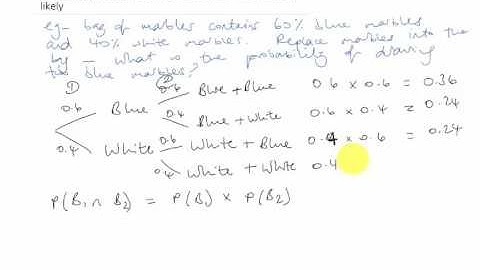 likely
eg- bag of marbles contains 60% blue marbles
and 40% white marbles. Replace marbles into the
bag — what is the probability of drawing
two blue marbles?
① ②
0.6 Blue 0.6 Blue + Blue 0.6 x 0.6 = 0.36
0.4 Blue + White 0.6 x 0.4 = 0.24
0.4 White 0.6 White + Blue 0.4 x 0.6 = 0.24
0.4 White + White 0.4
P(B₁ ∩ B₂) = P(B₁) x P(B₂)